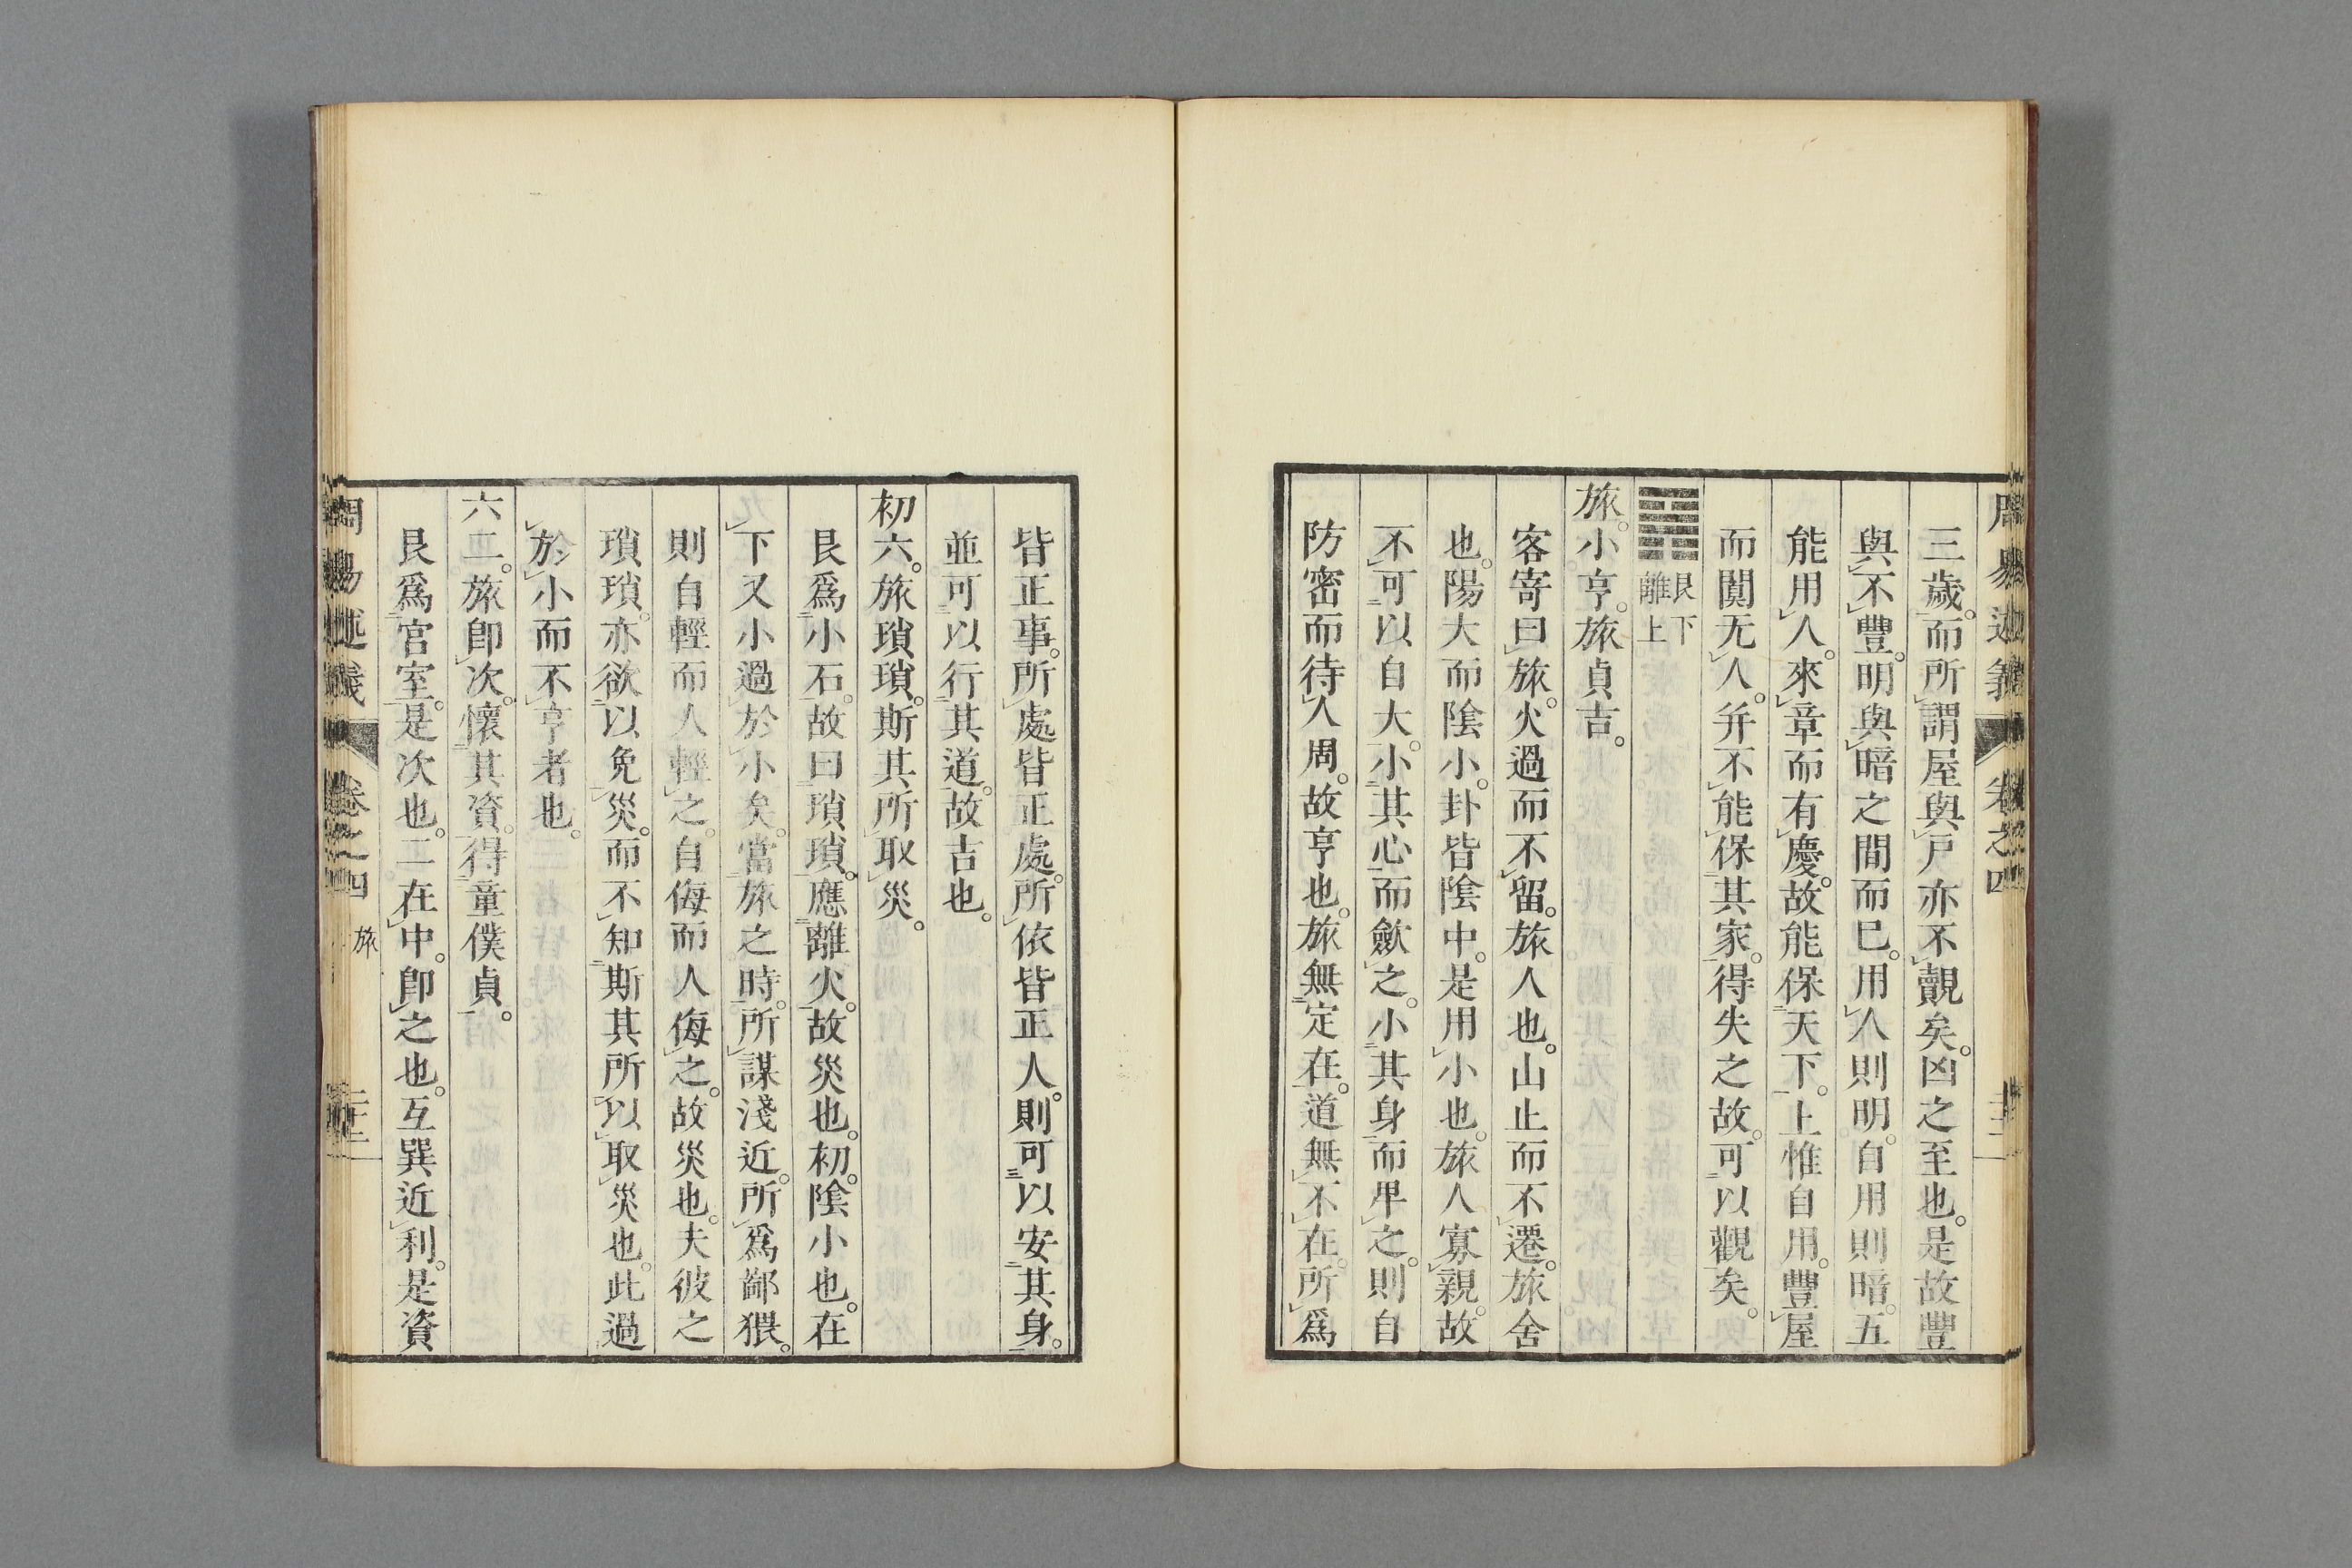 三歲。而所謂屋與戶亦不覿矣。凶之至也。是故豐
與不豐。明與暗之間而巳。用人則明。自用則暗。五
能用人。來章而有慶。故能保天下。上惟自用。豐屋
而闃无人。幷不能保其家。得失之故。可以觀矣。
艮下
離上
旅。小亨。旅貞吉。
客寄曰旅。火過而不留。旅人也。山止而不遷。旅舍
也。陽大而陰小。卦皆陰中。是用小也。旅人寡親。故
不可以自大。小其心而歛之。小其身而卑之。則自
防密而待人周。故亨也。旅無定在。道無不在。所爲
皆正事。所處皆正處。所依皆正人。則可以安其身。
並可以行其道。故吉也。
初六。旅瑣瑣。斯其所取災。
艮爲小石。故曰瑣瑣。應離火。故災也。初。陰小也。在
下又小過於小矣。當旅之時。所謀淺近。所爲鄙猥。
則自輕而人輕之。自侮而人侮之。故災也。夫彼之
瑣瑣。亦欲以免災。而不知斯其所以取災也。此過
於小而不亨者也。
六二。旅卽次。懷其資。得童僕貞。
艮爲宮室。是次也。二在中。卽之也。互巽近利。是資
周易述義 卷之四 旅